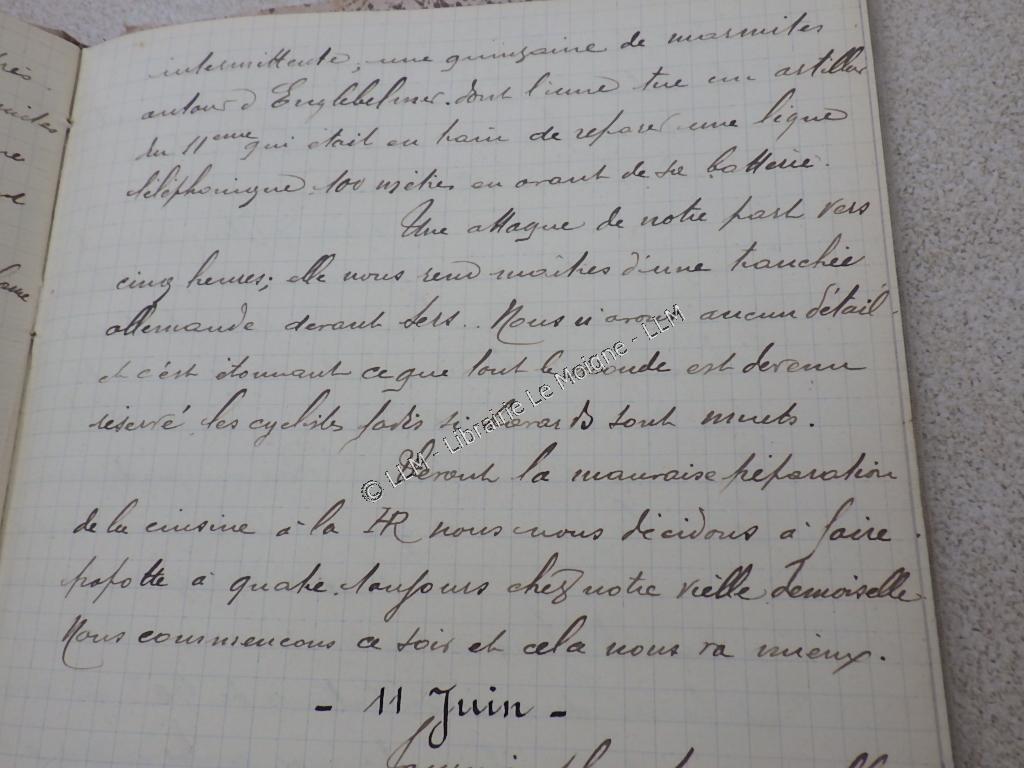 intermittente, une quinzaine de marmites
autour d'Englebelmer. dont l'une tue un artilleur
du 11eme qui était en train de reparer une ligne
téléphonique 100 mètres en avant de sa batterie.
Une attaque de notre part vers
cinq heures; elle nous rend maîtres d'une tranchée
allemande devant Sers.. Nous n'avons aucun détail
et c'est étonnant ce que tout le monde est devenu
réservé les cyclistes jadis si bavards sont muets.
Devant la mauvaise préparation
de la cuisine à la HR nous nous décidons à faire
popotte à quatre toujours chez notre vieille demoiselle
Nous commencons ce soir et cela nous va mieux.
- 11 Juin -
© LLM - Librairie Le Moigne - LLM